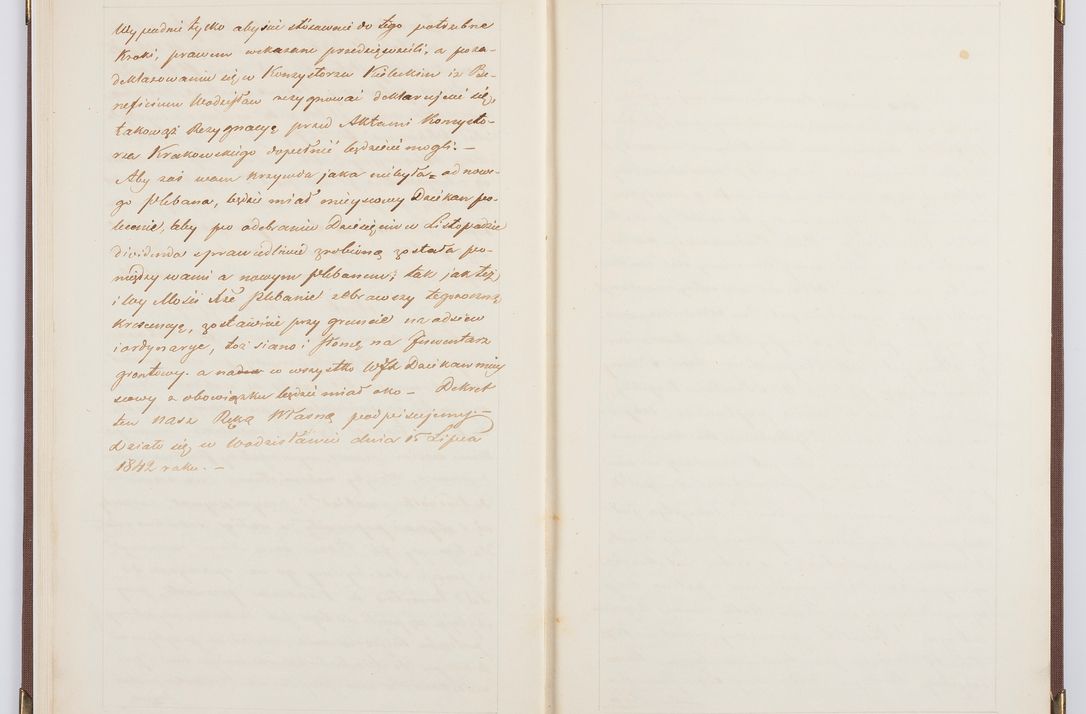 Wypadnie tylko abyście stósownie do tego potrzebne
kroki, prawem wskazane przedsięwzieli, a poza-
deklarowaniu się w Konsystorzu Kieleckim iż Be-
neficium Wodzisław rezygnować deklarujecie się,
takowąż Rezygnacyę przed Aktami Konsysto-
rza Krakowskiego dopełnić będziecie mogli. —
Aby zaś wam krzywda jaka niebyła od nowe-
go Plebana, będzie miał mieyscowy Dziekan po-
lecenie, żeby po odebraniu Dziesięcin w Listopadzie
dividenda sprawiedliwie zrobioną została po-
między wami a nowym Plebanem; tak jak też
i Wy Mości Xże Plebanie zebrawszy tegoroczną
krescencyę, zostawicie przy gruncie na odsiew
i ordynarye, toż siano i słomę na Inwentarz
grontowy. a nadew co wszystko WJX Dziekan miey
scowy z obowiązku będzie miał oko — Dekret
ten nasz Ręką Własną podpisujemy —
Działo się w Wodzisławiu dnia 15 Lipca
1842 roku. —